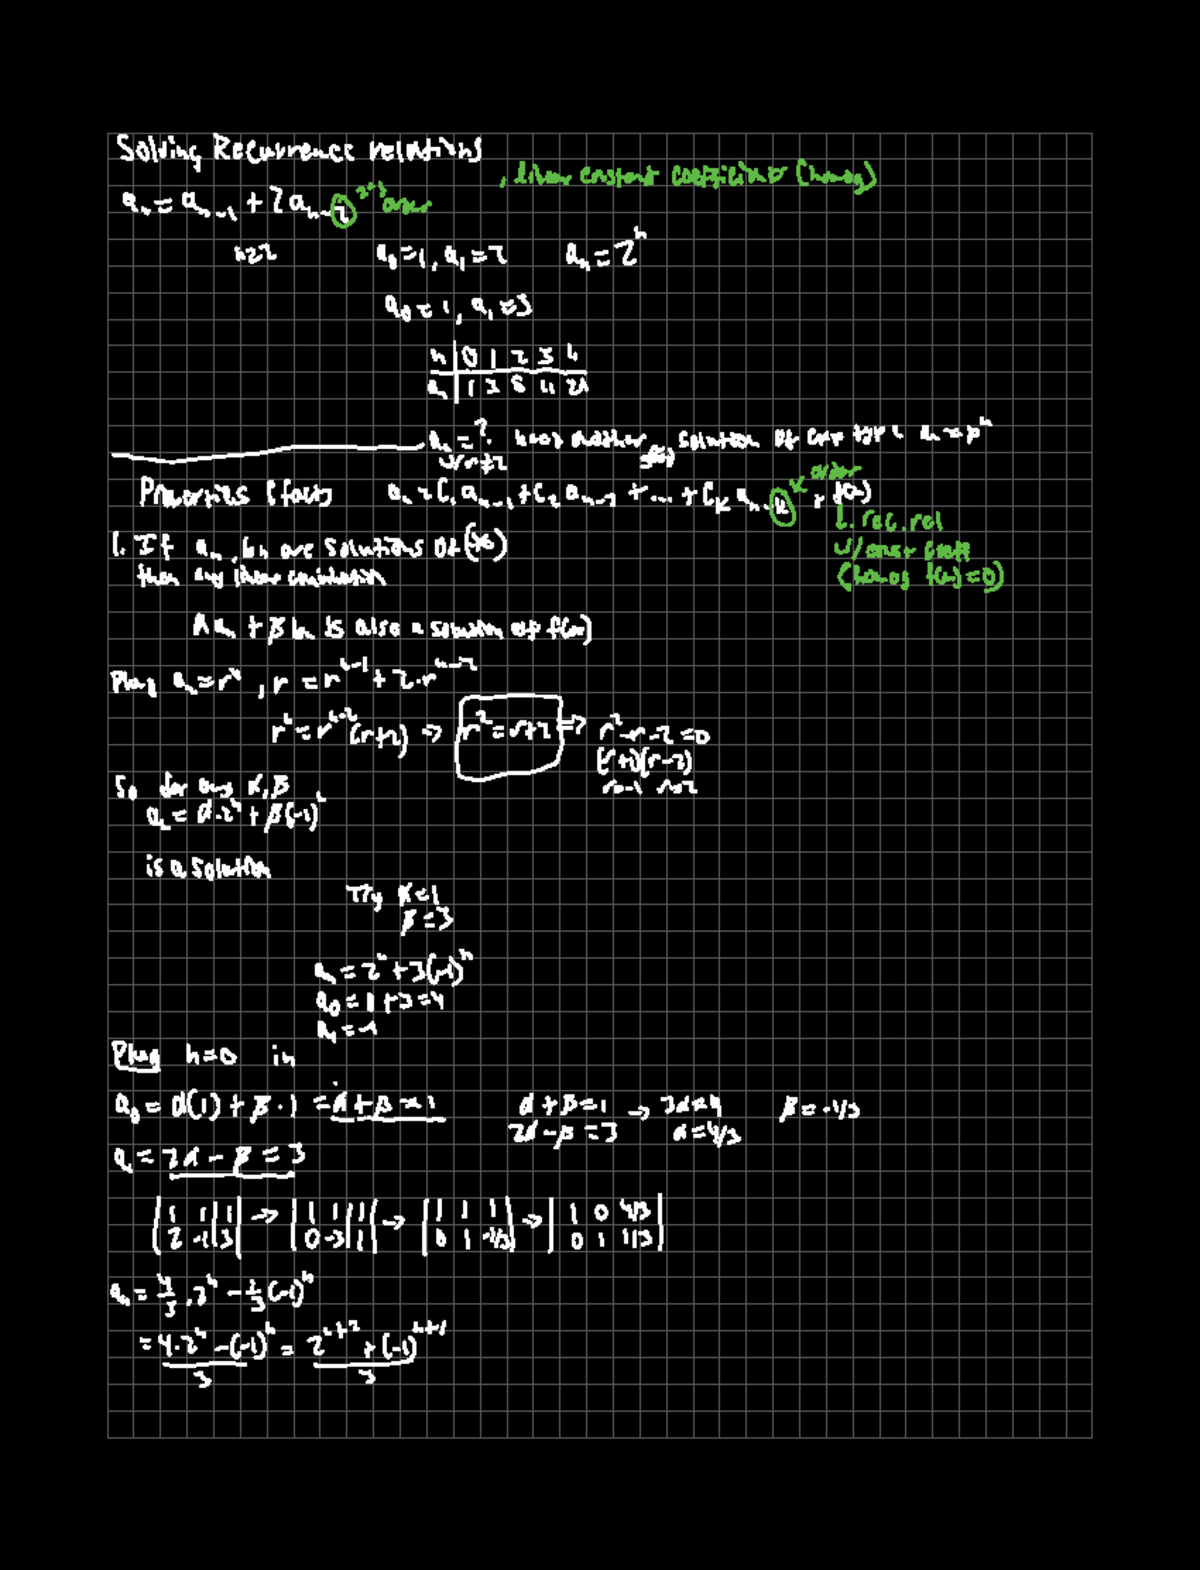 Solving Recurrence relations
, linear constant coefficients (homog)
aₙ = aₙ₋₁ + 2aₙ₋₂ 2nd order
n≥2 a₀=1, a₁=2 aₙ=2ⁿ
a₀=1, a₁=3
n | 0 1 2 3 4
aₙ | 1 3 5 11 21
aₙ = ? need another solution of type aₙ = rⁿ
w/ r≠2
Properties & facts aₙ = C₁aₙ₋₁ + C₂aₙ₋₂ + ... + Cₖaₙ₋ₖ + f(n)
k order
L. rec. rel
w/ const coeff
(homog f(n)=0)
1. If aₙ, bₙ are solutions of (*)
then any linear combination
Aaₙ + βbₙ is also a solution of f(n)
Plug aₙ=rⁿ, r = rⁿ⁻¹ + 2·rⁿ⁻²
rⁿ = rⁿ⁻²(r+2) → r² = r+2 ⇒ r²-r-2=0
(r+1)(r-2)
r=-1 r=2
So for any α, β
aₙ = α·2ⁿ + β(-1)ⁿ
is a solution
Try α=1
β=3
aₙ = 2ⁿ + 3(-1)ⁿ
a₀ = 1+3=4
a₁ = -1
Plug n=0 in
a₀ = α(1) + β·1 = α+β=1 α+β=1 → 3α=4 β=-1/3
2α-β=3 α=4/3
a₁ = 2α - β = 3
| 1 1 | 1 | → | 1 1 | 1 | → | 1 1 1 | → | 1 0 4/3 |
| 2 -1 | 3 | | 0 -3 | 1 | | 0 1 -1/3 | | 0 1 1/3 |
aₙ = 4/3 · 2ⁿ - 1/3 (-1)ⁿ
= 4·2ⁿ - (-1)ⁿ / 3 = 2ⁿ⁺² + (-1)ⁿ⁺¹ / 3